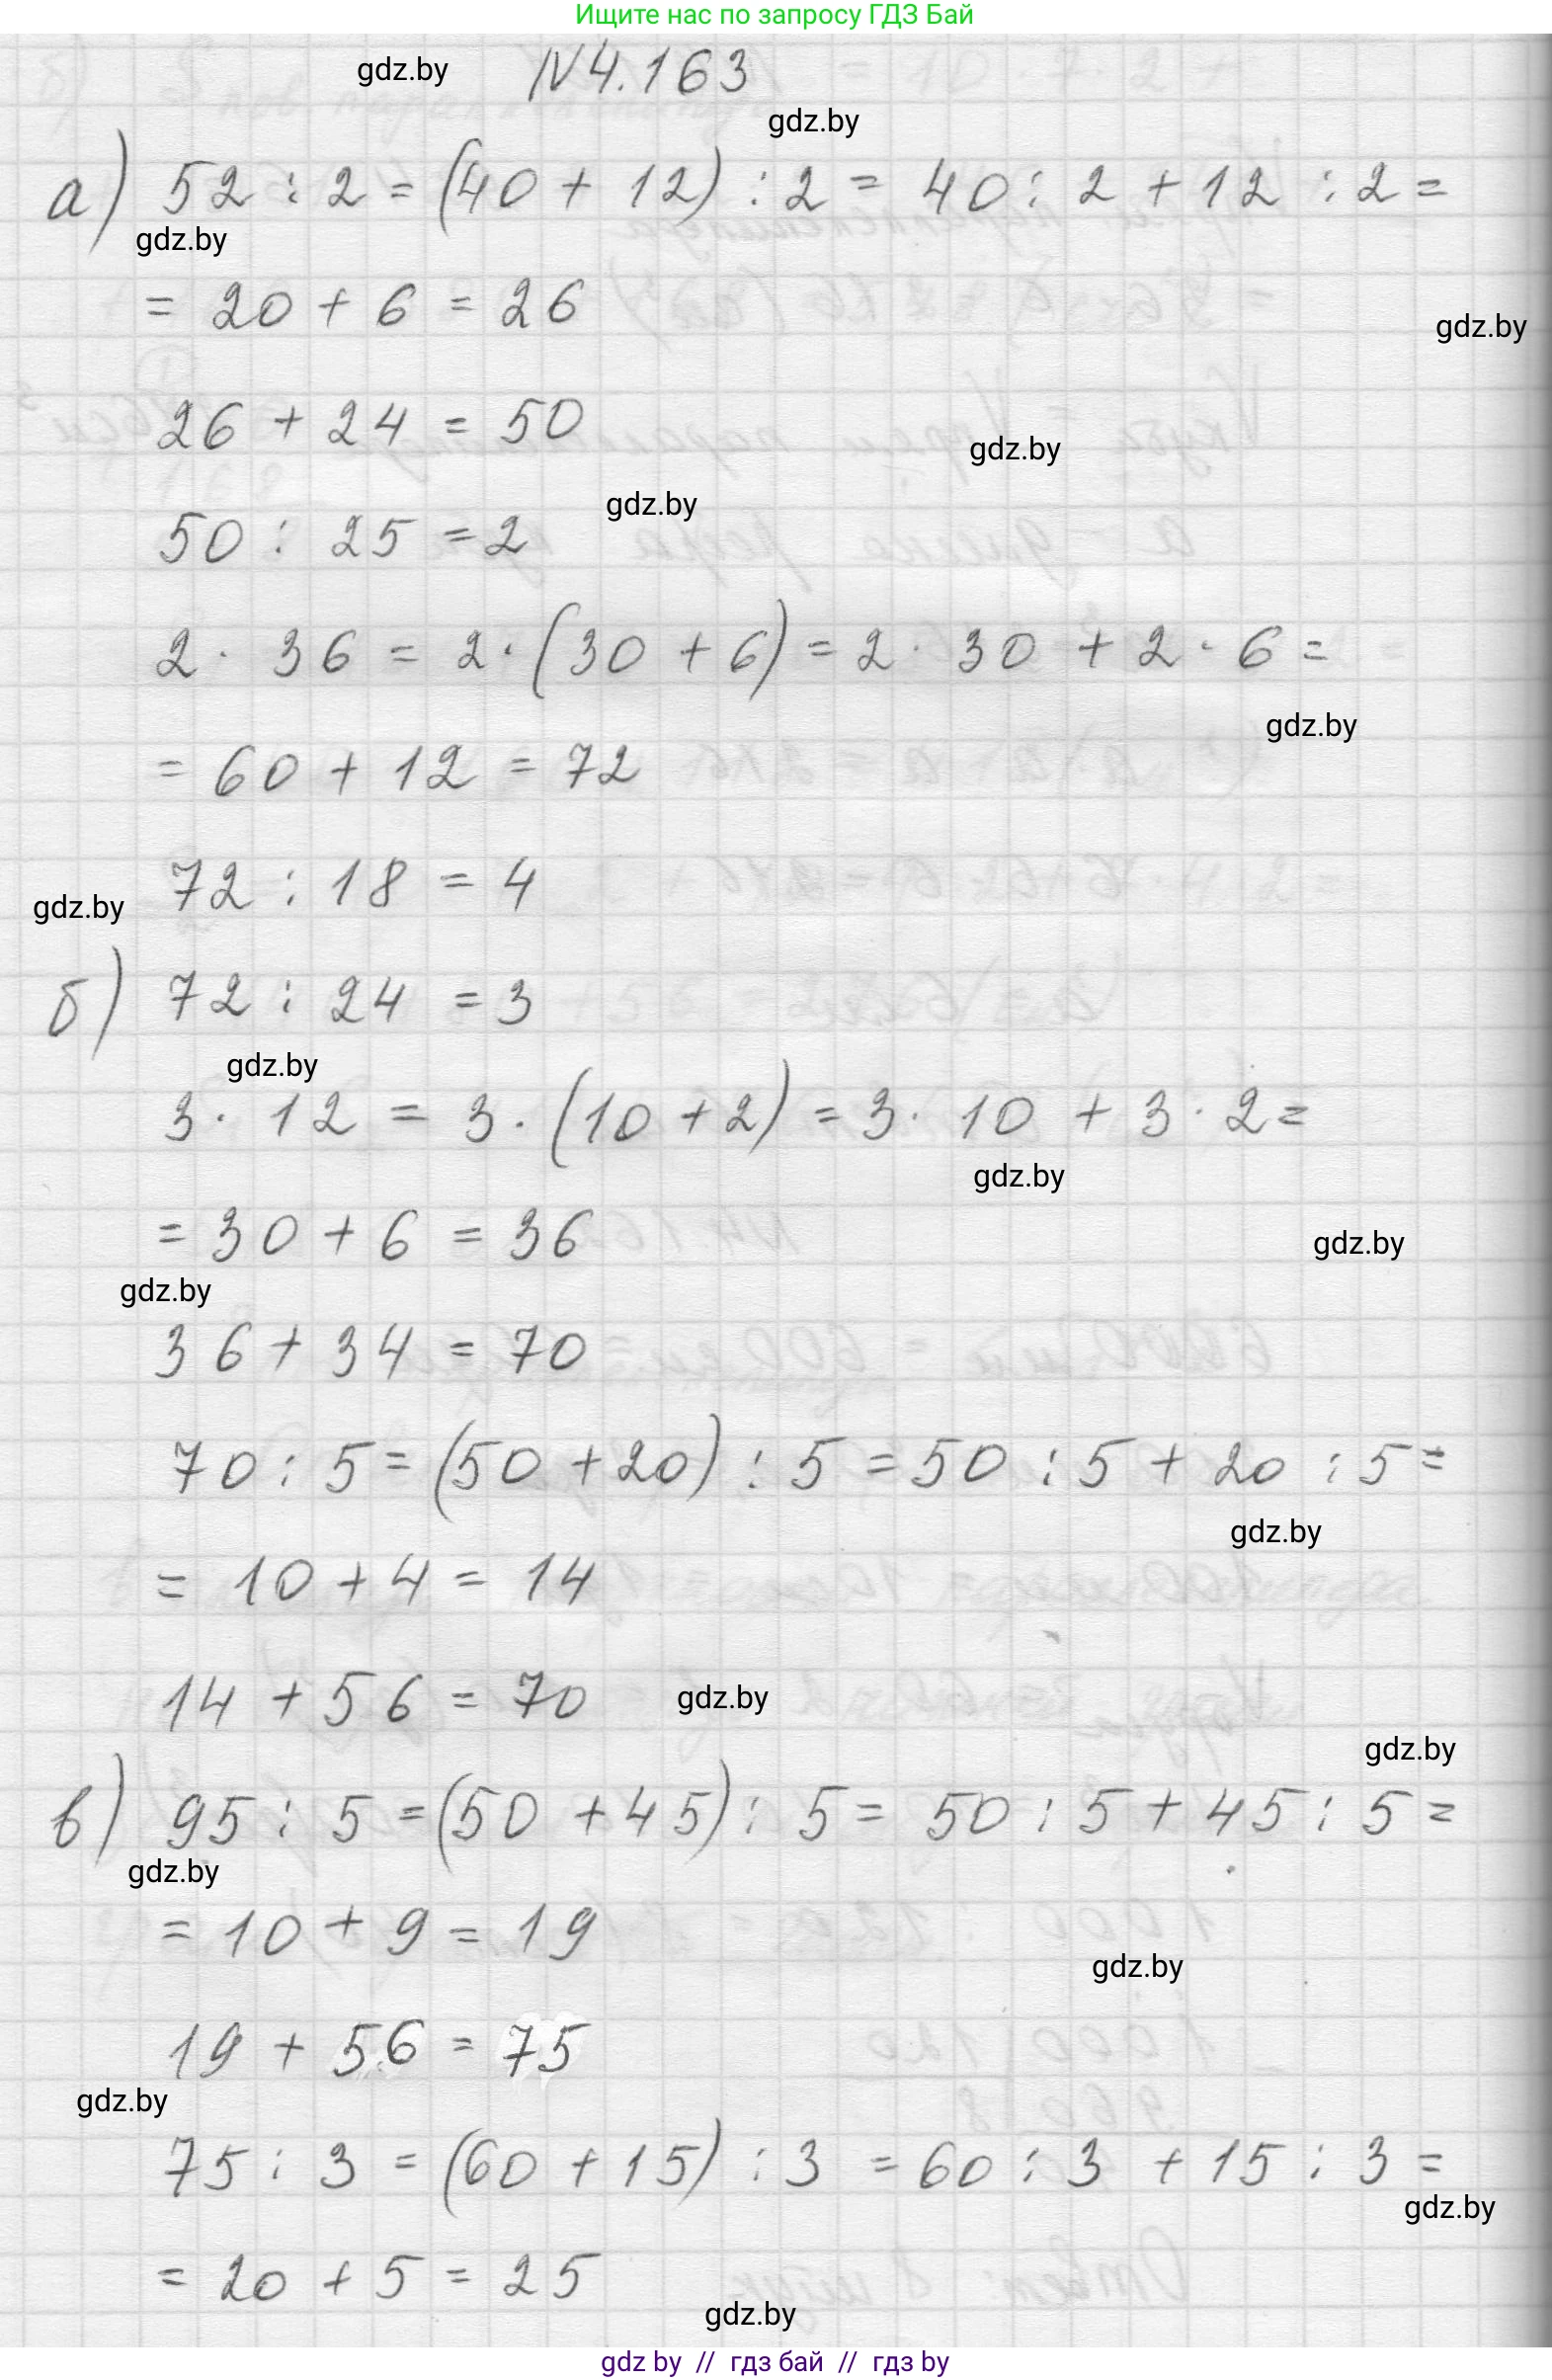 Ищите нас по запросу ГДЗ Бай
gdz.by
N4.163
gdz.by
а) 52 : 2 = (40 + 12) : 2 = 40 : 2 + 12 : 2 =
gdz.by
= 20 + 6 = 26
gdz.by
26 + 24 = 50
gdz.by
gdz.by
50 : 25 = 2
2 · 36 = 2 · (30 + 6) = 2 · 30 + 2 · 6 =
gdz.by
= 60 + 12 = 72
72 : 18 = 4
gdz.by
б) 72 : 24 = 3
gdz.by
3 · 12 = 3 · (10 + 2) = 3 · 10 + 3 · 2 =
gdz.by
= 30 + 6 = 36
gdz.by
gdz.by
36 + 34 = 70
70 : 5 = (50 + 20) : 5 = 50 : 5 + 20 : 5 =
gdz.by
= 10 + 4 = 14
14 + 56 = 70
gdz.by
gdz.by
в) 95 : 5 = (50 + 45) : 5 = 50 : 5 + 45 : 5 =
gdz.by
= 10 + 9 = 19
gdz.by
19 + 56 = 75
gdz.by
75 : 3 = (60 + 15) : 3 = 60 : 3 + 15 : 3 =
gdz.by
= 20 + 5 = 25
gdz.by
gdz by // гдз бай // гдз by